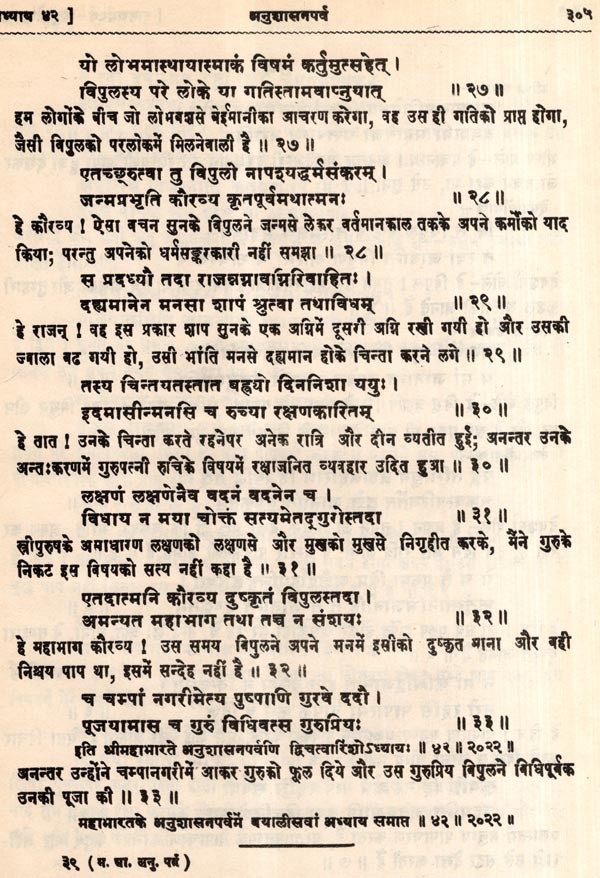 अध्याय ४२ ] अनुशासनपर्व ३०५
यो लोभमास्थायास्माकं विषमं कर्तुमुत्सहेत् ।
विपुलस्य परे लोके या गतिस्तामवाप्नुयात् ॥ २७ ॥
हम लोगोंके बीच जो लोभवशसे बेईमानीका आचरण करेगा, वह उस ही गतिको प्राप्त होगा,
जैसी विपुलको परलोकमें मिलनेवाली है ॥ २७ ॥
एतच्छ्रुत्वा तु विपुलो नापश्यद्धर्मसंकरम् ।
जन्मप्रभृति कौरव्य कृतपूर्वमथात्मनः ॥ २८ ॥
हे कौरव्य ! ऐसा वचन सुनके विपुलने जन्मसे लेकर वर्तमानकाल तकके अपने कर्मोंको याद
किया; परन्तु अपनेको धर्मसङ्करकारी नहीं समझा ॥ २८ ॥
स प्रदध्यौ तदा राजन्नग्नावग्निरिवाहितः ।
दह्यमानेन मनसा शापं श्रुत्वा तथाविधम् ॥ २९ ॥
हे राजन् ! वह इस प्रकार शाप सुनके एक अग्निमें दूसरी अग्नि रखी गयी हो और उसकी
ज्वाला बढ गयी हो, उसी भांति मनसे दह्यमान होके चिन्ता करने लगे ॥ २९ ॥
तस्य चिन्तयतस्तात बह्व्यो दिननिशा ययुः ।
इदमासीन्मनसि च रुच्या रक्षणकारितम् ॥ ३० ॥
हे तात ! उनके चिन्ता करते रहनेपर अनेक रात्रि और दीन व्यतीत हुई; अनन्तर उनके
अन्तःकरणमें गुरुपत्नी रुचिके विषयमें रक्षाजनित व्यवहार उदित हुआ ॥ ३० ॥
लक्षणं लक्षणेनैव वदनं वदनेन च ।
विधाय न मया चोक्तं सत्यमेतद्गुरोस्तदा ॥ ३१ ॥
स्त्रीपुरुषके असाधारण लक्षणको लक्षणसे और मुखको मुखसे निगृहीत करके, मैंने गुरुके
निकट इस विषयको सत्य नहीं कहा है ॥ ३१ ॥
एतदात्मनि कौरव्य दुष्कृतं विपुलस्तदा ।
अमन्यत महाभाग तथा तच्च न संशयः ॥ ३२ ॥
हे महाभाग कौरव्य ! उस समय विपुलने अपने मनमें इसीको दुष्कृत माना और वही
निश्चय पाप था, इसमें सन्देह नहीं है ॥ ३२ ॥
स चम्पां नगरीमेत्य पुष्पाणि गुरवे ददौ ।
पूजयामास च गुरुं विधिवत्स गुरुप्रियः ॥ ३३ ॥
इति श्रीमहाभारते अनुशासनपर्वणि द्विचत्वारिंशोऽध्यायः ॥ ४२ ॥ २०२२ ॥
अनन्तर उन्होंने चम्पानगरीमें आकर गुरुको फूल दिये और उस गुरुप्रिय विपुलने विधिपूर्वक
उनकी पूजा की ॥ ३३ ॥
महाभारतके अनुशासनपर्वमें बयालीसवां अध्याय समाप्त ॥ ४२ ॥ २०२२ ॥
३९ ( म. भा. अनु. पर्व )